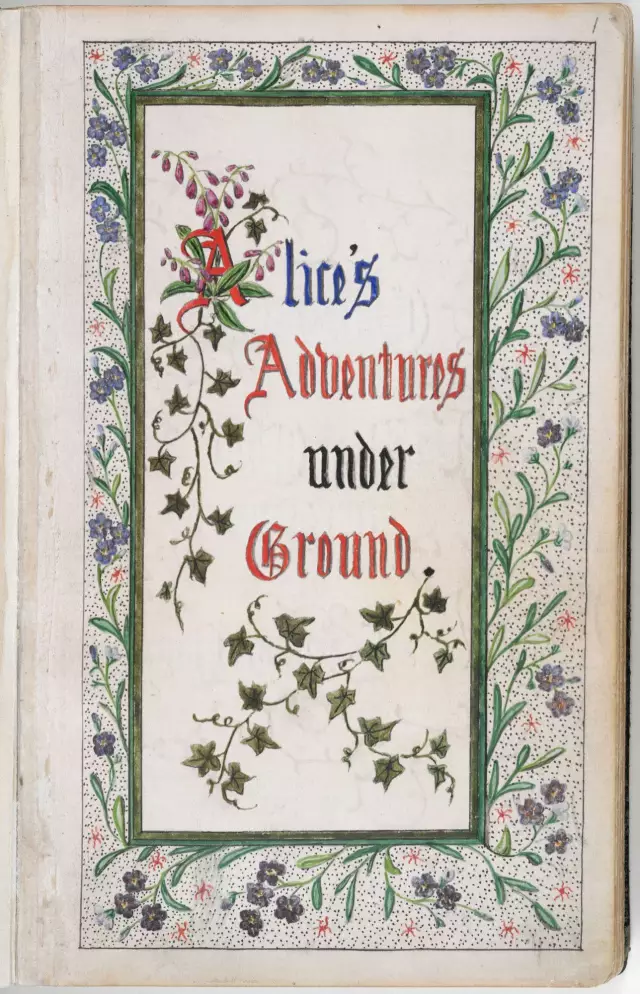 1
Alice's
Adventures
under
Ground